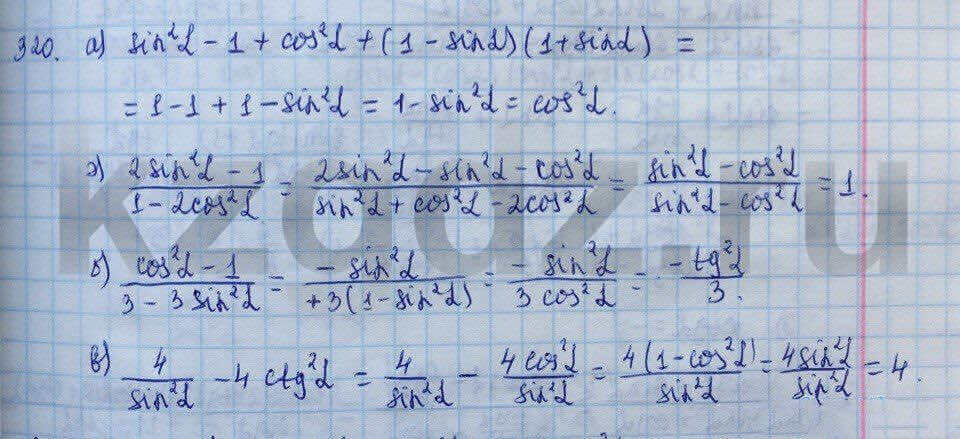 320. а) sin²α - 1 + cos²α + (1 - sinα)(1 + sinα) =
= 1 - 1 + 1 - sin²α = 1 - sin²α = cos²α.
э) (2sin²α - 1)/(1 - 2cos²α) = (2sin²α - sin²α - cos²α)/(sin²α + cos²α - 2cos²α) = (sin²α - cos²α)/(sin²α - cos²α) = 1.
б) (cos²α - 1)/(3 - 3sin²α) = (-sin²α)/(+3(1 - sin²α)) = (-sin²α)/(3cos²α) = (-tg²α)/3.
в) 4/sin²α - 4 ctg²α = 4/sin²α - 4cos²α/sin²α = 4(1 - cos²α)/sin²α = 4sin²α/sin²α = 4.
kzgdz.ru